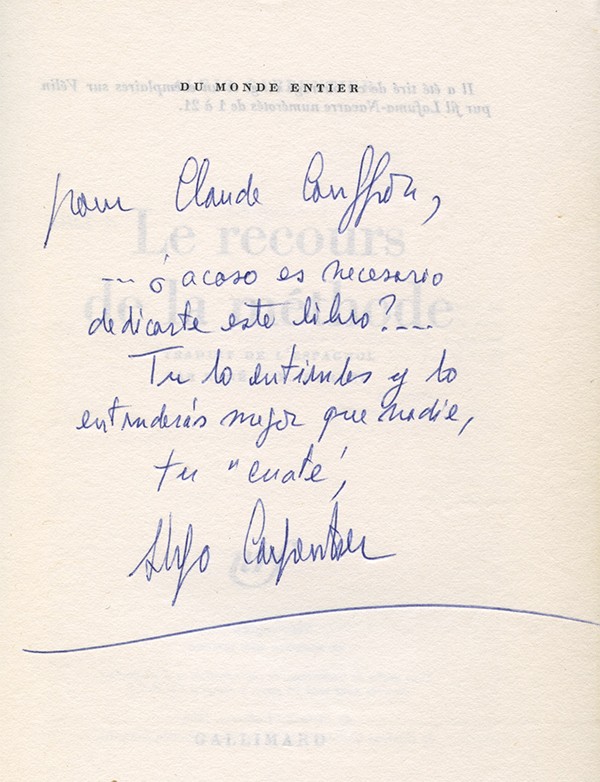 DU MONDE ENTIER
Il a été tiré de exemplaires sur Vélin
pur fil Lafuma-Navarre numérotés de 1 à 21.
pour Claude Couffon,
Le recours
--- ó acaso es necesario
de la méthode
dedicarte este libro?---
TRADUIT DE L'ESPAGNOL
Tu lo entiendes y lo
entenderás mejor que nadie,
tu "cuate",
Alejo Carpentier
GALLIMARD